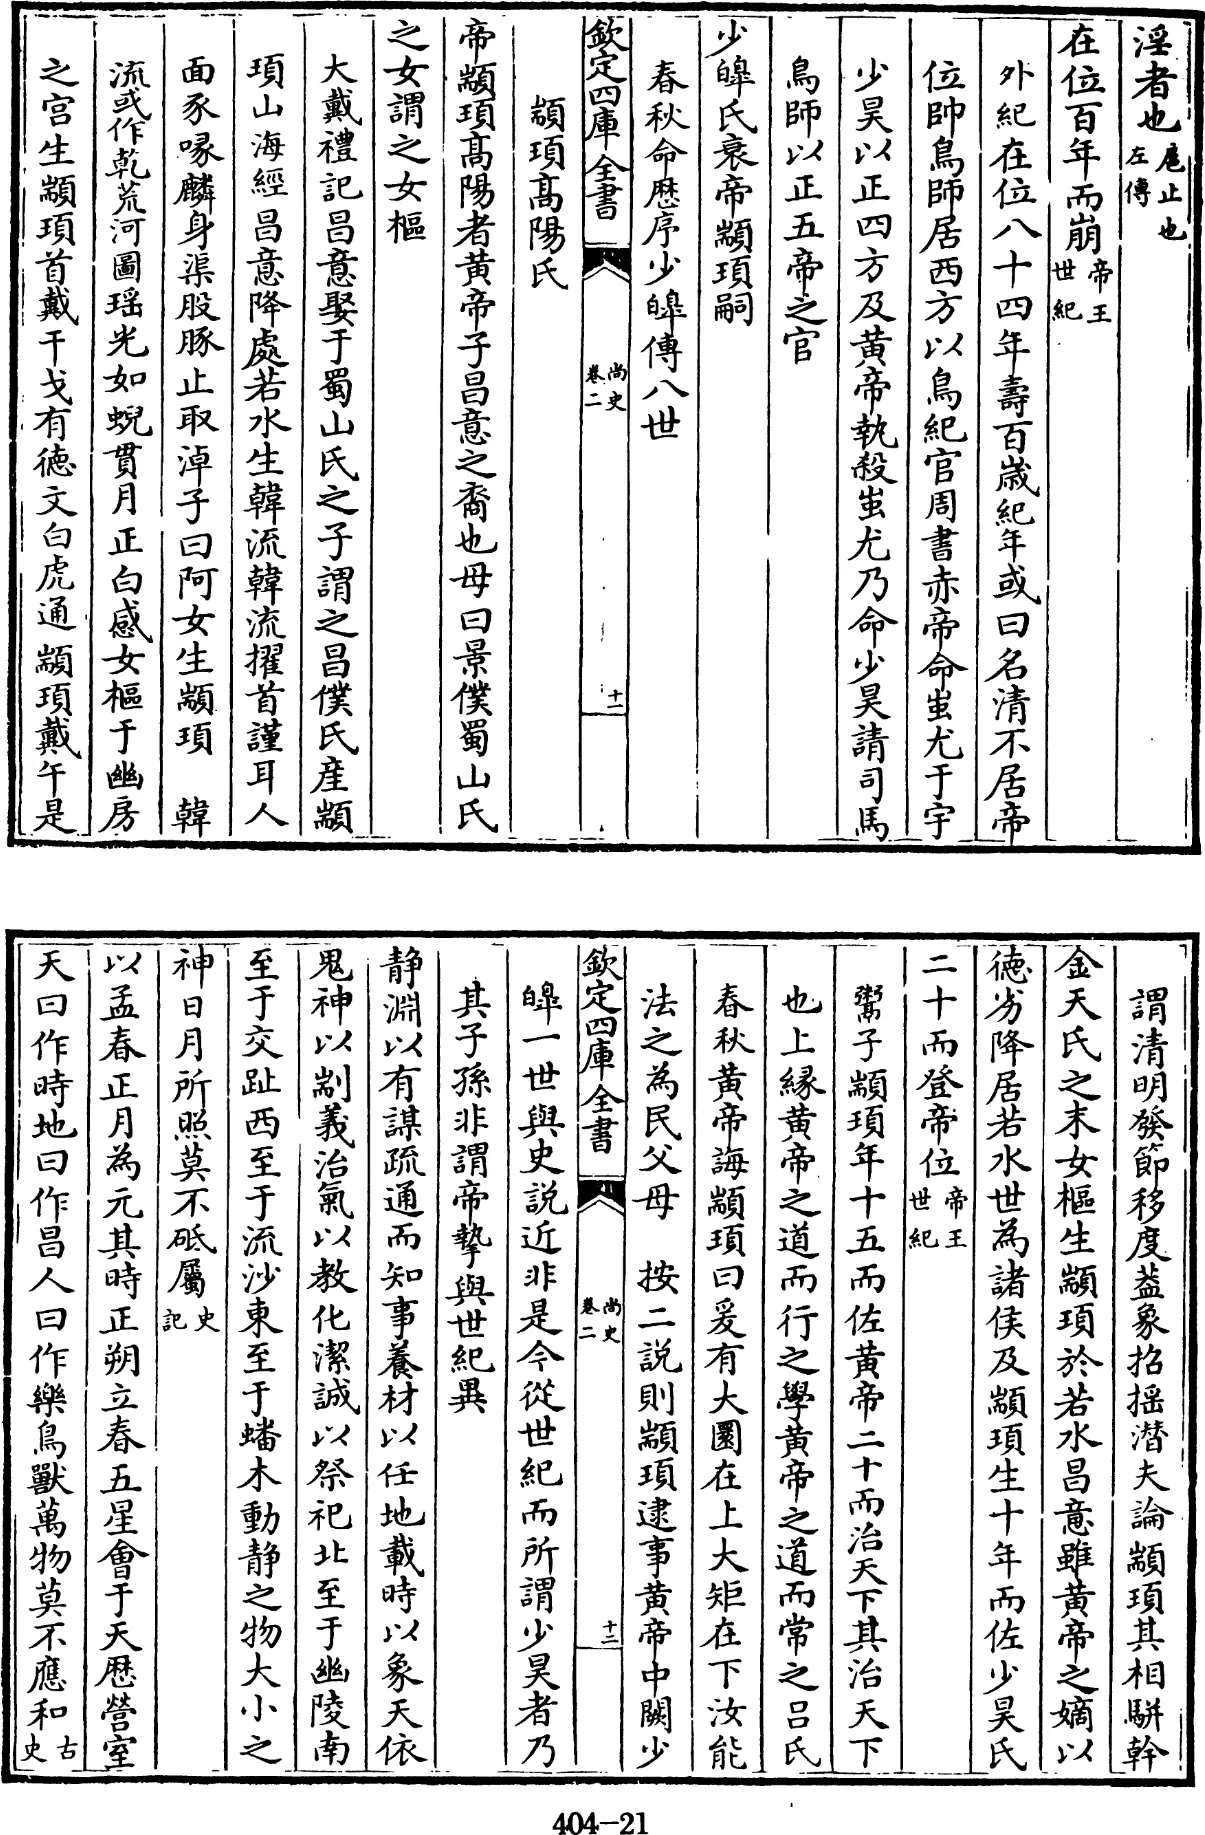 淫者也扈止也左傳
在位百年而崩帝王世紀
外紀在位八十四年壽百歲紀年或曰名清不居帝
位帥鳥師居西方以鳥紀官周書赤帝命蚩尤于宇
少昊以正四方及黃帝執殺蚩尤乃命少昊請司馬
鳥師以正五帝之官
少皥氏衰帝顓頊嗣
春秋命歷序少皥傳八世
欽定四庫全書
尚史
卷二
十一
顓頊高陽氏
帝顓頊高陽者黃帝子昌意之裔也母曰景僕蜀山氏
之女謂之女樞
大戴禮記昌意娶于蜀山氏之子謂之昌僕氏産顓
頊山海經昌意降處若水生韓流韓流擢首謹耳人
面豕喙麟身渠股豚止取淖子曰阿女生顓頊　韓
流或作乾荒河圖瑶光如蜺貫月正白感女樞于幽房
之宮生顓頊首戴干戈有德文白虎通顓頊戴午是
謂清明發節移度蓋象招搖潛夫論顓頊其相駢幹
金天氏之末女樞生顓頊於若水昌意雖黃帝之嫡以
德劣降居若水世為諸侯及顓頊生十年而佐少昊氏
二十而登帝位帝王世紀
鬻子顓頊年十五而佐黃帝二十而治天下其治天下
也上緣黃帝之道而行之學黃帝之道而常之呂氏
春秋黃帝誨顓頊曰爰有大圜在上大矩在下汝能
法之為民父母　按二說則顓頊逮事黃帝中闕少
欽定四庫全書
尚史
卷二
十二
皥一世與史説近非是今從世紀而所謂少昊者乃
其子孫非謂帝摯與世紀異
静淵以有謀疏通而知事養材以任地載時以象天依
鬼神以剬義治氣以教化潔誠以祭祀北至于幽陵南
至于交趾西至于流沙東至于蟠木動静之物大小之
神日月所照莫不砥屬史記
以孟春正月為元其時正朔立春五星會于天歷營室
天曰作時地曰作昌人曰作樂鳥獸萬物莫不應和古史
404-21